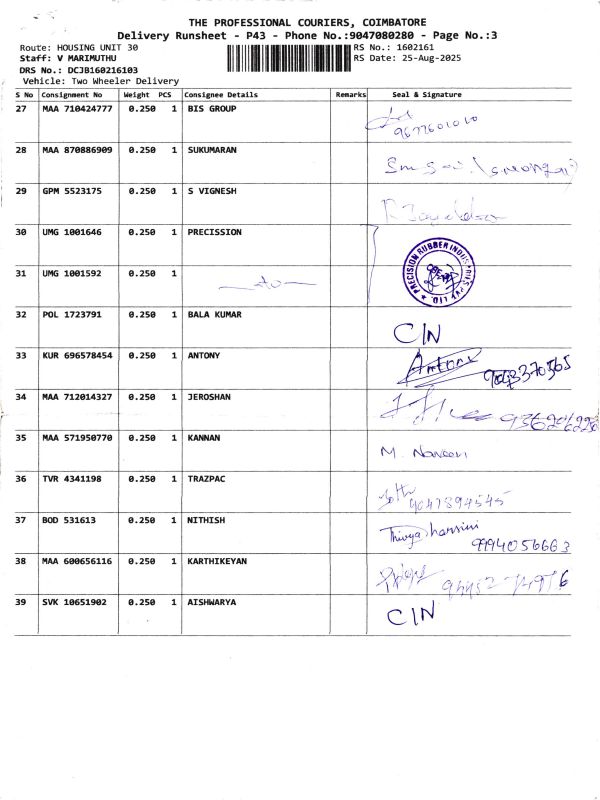 THE PROFESSIONAL COURIERS, COIMBATORE
Delivery Runsheet - P43 - Phone No.:9047080280 - Page No.:3
Route: HOUSING UNIT 30 RS No.: 1602161
Staff: V MARIMUTHU RS Date: 25-Aug-2025
DRS No.: DCJB160216103
Vehicle: Two Wheeler Delivery
S No Consignment No Weight PCS Consignee Details Remarks Seal & Signature
27 MAA 710424777 0.250 1 BIS GROUP
9677601010
28 MAA 870886909 0.250 1 SUKUMARAN
29 GPM 5523175 0.250 1 S VIGNESH
30 UMG 1001646 0.250 1 PRECISSION
PRECISION RUBBER INDUSTRIES PVT LTD
31 UMG 1001592 0.250 1
32 POL 1723791 0.250 1 BALA KUMAR
C/N
33 KUR 696578454 0.250 1 ANTONY Antony
34 MAA 712014327 0.250 1 JEROSHAN
35 MAA 571950770 0.250 1 KANNAN
M. Naveen
36 TVR 4341198 0.250 1 TRAZPAC
9047894545
37 BOD 531613 0.250 1 NITHISH
Thivya harsini
9994056663
38 MAA 600656116 0.250 1 KARTHIKEYAN
39 SVK 10651902 0.250 1 AISHWARYA
C/N